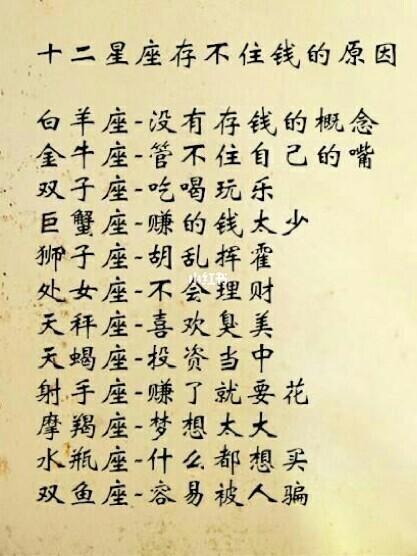 十二星座存不住钱的原因
白羊座-没有存钱的概念
金牛座-管不住自己的嘴
双子座-吃喝玩乐
巨蟹座-赚的钱太少
狮子座-胡乱挥霍
处女座-不会理财
小红书
天秤座-喜欢臭美
天蝎座-投资当中
射手座-赚了就要花
摩羯座-梦想太大
水瓶座-什么都想买
双鱼座-容易被人骗